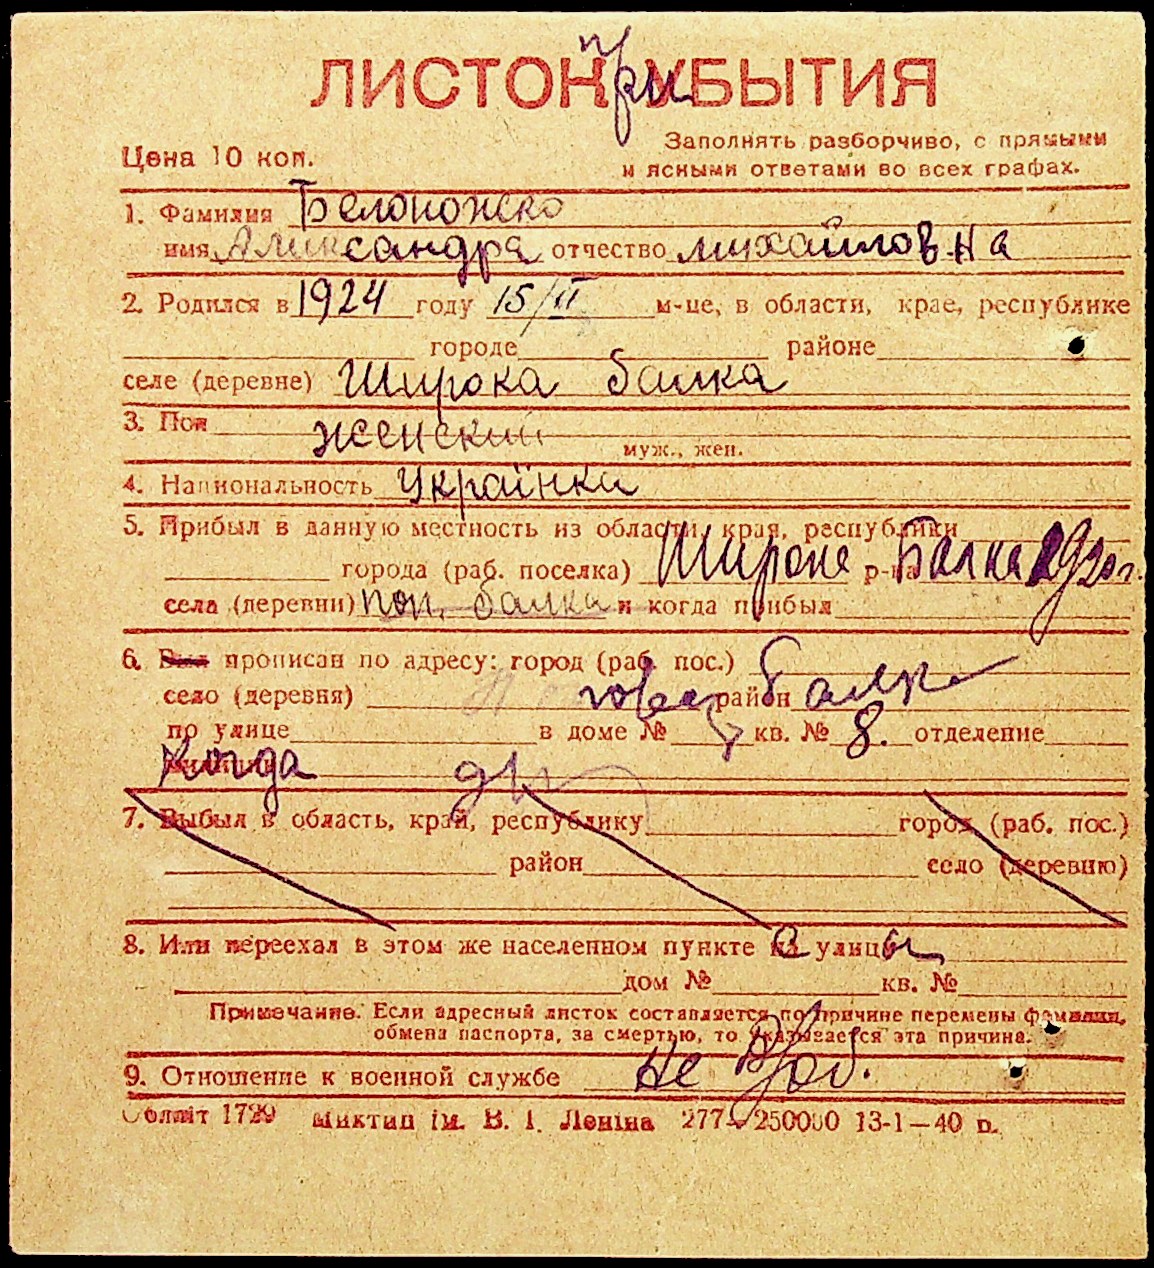 ЛИСТОК при УБЫТИЯ
Цена 10 коп.
Заполнять разборчиво, с прямыми
и ясными ответами во всех графах.
1. Фамилия Белоножско
имя Александра отчество михайловна
2. Родился в 1924 году 15/II м-це, в области, крае, республике
городе районе
селе (деревне) Широка балка
3. Пол женский
муж., жен.
4. Национальность Українка
5. Прибыл в данную местность из области, края, республики
города (раб. поселка) Широке р-на Балка
села (деревни) поп. балка и когда прибыл
6. Был прописан по адресу: город (раб. пос.)
село (деревня) район балка
по улице в доме № 7 кв. № 8. отделение
милиции Когда
7. Выбыл в область, край, республику город (раб. пос.)
район село (деревню)
8. Или переехал в этом же населенном пункте с улицы
дом № кв. №
Примечание. Если адресный листок составляется по причине перемены фамилии,
обмена паспорта, за смертью, то указывается эта причина.
9. Отношение к военной службе не
Облліт 1729 Миктип ім. В. І. Леніна 277—250000 13-1—40 р.